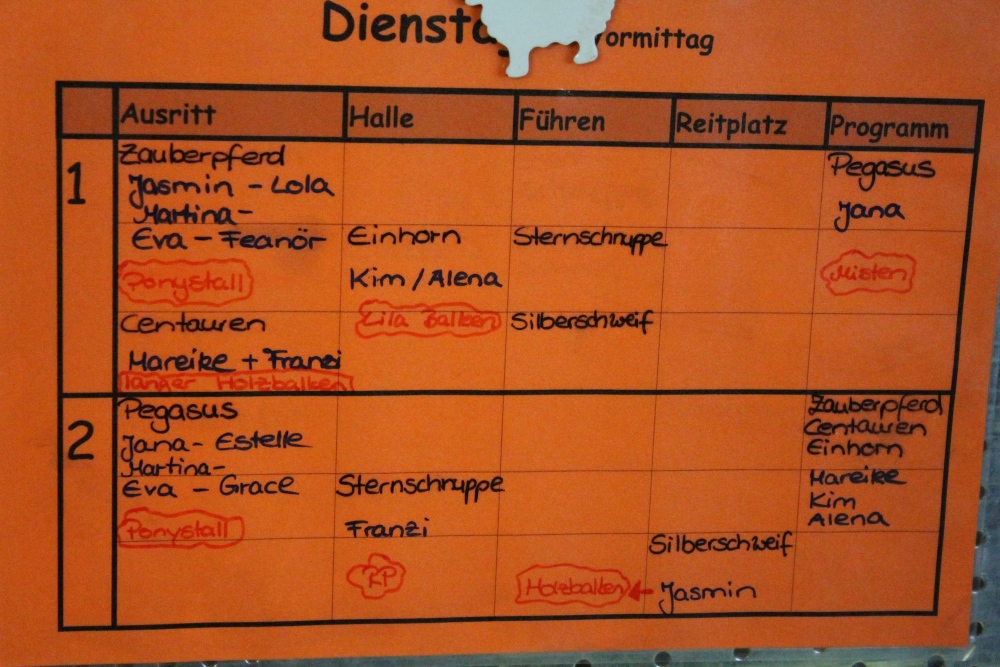 Dienstag Vormittag
Ausritt Halle Führen Reitplatz Programm
1
Zauberpferd
Jasmin - Lola
Martina-
Eva - Feanör
Ponystall
Centauren
Mareike + Franzi
langer Holzbalken
Einhorn
Kim / Alena
Lila Balken
Sternschnuppe
Silberschweif
Pegasus
Jana
Misten
2
Pegasus
Jana- Estelle
Martina-
Eva - Grace
Ponystall
Sternschnuppe
Franzi
RP
Holzbalken
Silberschweif
Jasmin
Zauberpferd
Centauren
Einhorn
Mareike
Kim
Alena